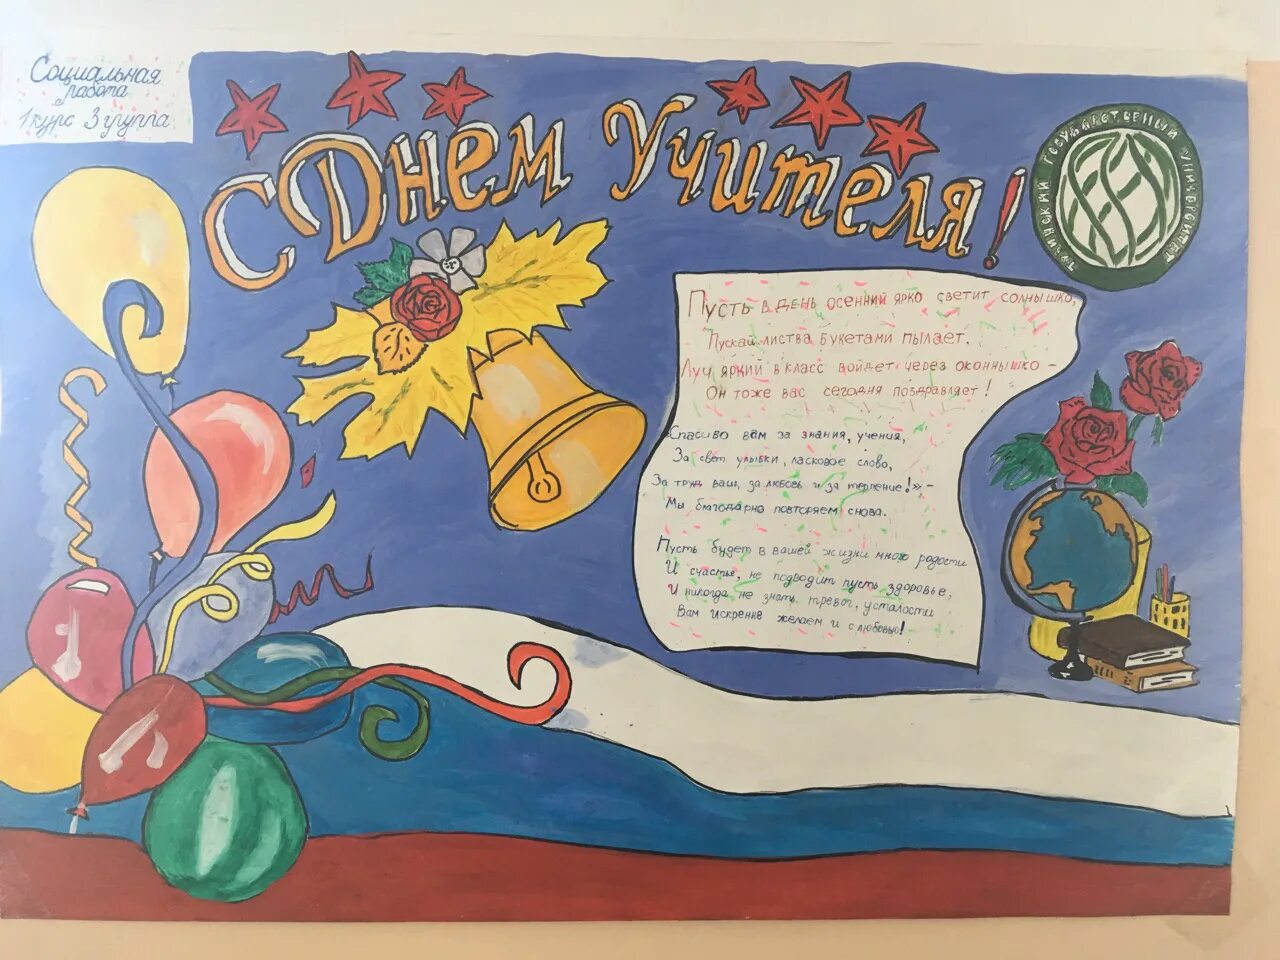 Социальная
работа
1 курс 3 группа
С Днем Учителя!
Тувинский государственный университет
Пусть в день осенний ярко светит солнышко,
Пускай листва букетами пылает,
Луч яркий в класс войдет через оконнышко –
Он тоже вас сегодня поздравляет!
Спасибо вам за знания, учения,
За свет улыбки, ласковое слово,
За труд ваш, за любовь и за терпение!» –
Мы благодарно повторяем снова.
Пусть будет в вашей жизни много радости
И счастья, не подводит пусть здоровье,
И никогда не знать тревог, усталости
Вам искренне желаем и с любовью!